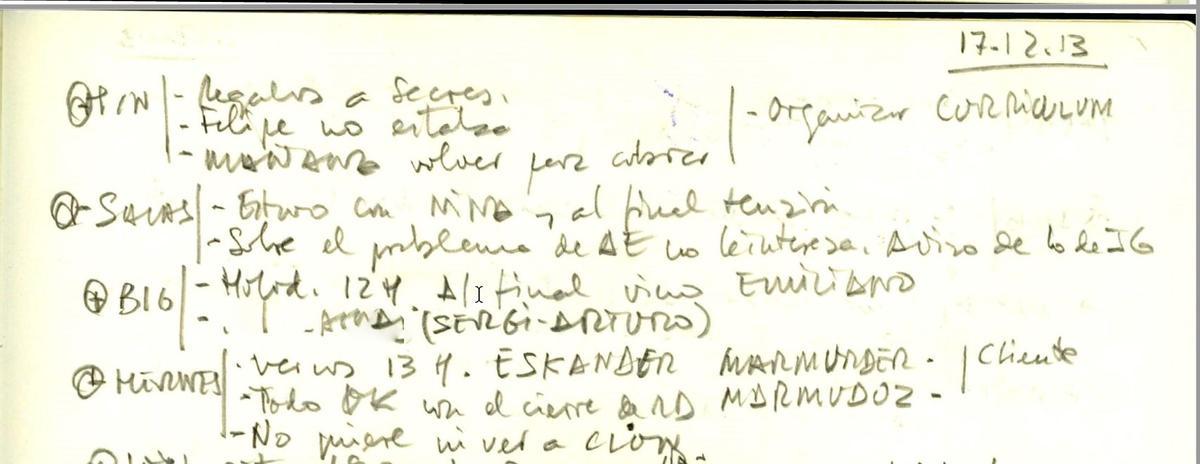 17-12.13
PIN - Regalos a Secres. - Organizar CURRICULUM
- Felipe no estaba
- MAÑANA volver para cobrar
SALAS - Estuvo con NINO y al final tensión
- Sobre el problema de AE no le interesa. Aviso de lo de JG
BIG 12 H. Al final vino EMILIANO
- (SERGI-ARTURO)
- Vernos 13 H. ESKANDER MARMURDER - Cliente
- Todo OK con el cierre de RD MARMUDOZ -
- No quiere ni ver a